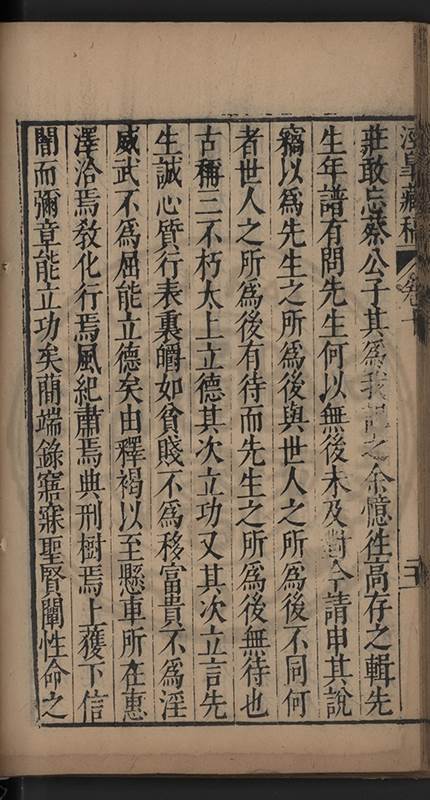 涇臯藏稿 卷十 二十
莊敢忘蔡公子其爲我記之余憶徃高存之輯先
生年譜有問先生何以無後未及對今請申其說
竊以爲先生之所爲後與世人之所爲後不同何
者世人之所爲後有待而先生之所爲後無待也
古稱三不朽太上立德其次立功又其次立言先
生誠心質行表裏皭如貧賤不爲移富貴不爲淫
威武不爲屈能立德矣由釋褐以至懸車所在惠
澤洽焉敎化行焉風紀肅焉典刑樹焉上獲下信
闇而彌章能立功矣藺端錄寤寐聖賢闡性命之